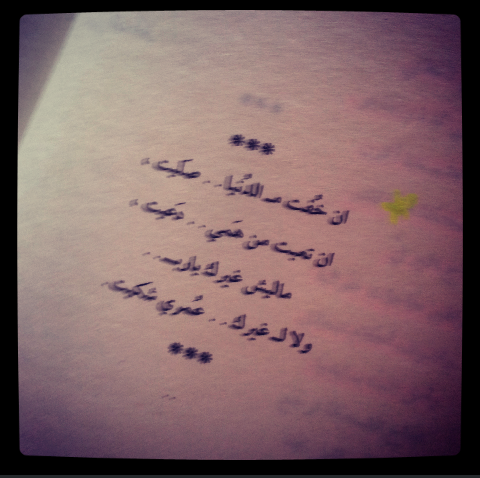 ***
ان خفت مـ الدُنيا.. صليت،
ان تعبت من همي.. دعيت،
ماليش غيرك يارب..
ولا لـ غيرك.. عُمري شكيت،
***